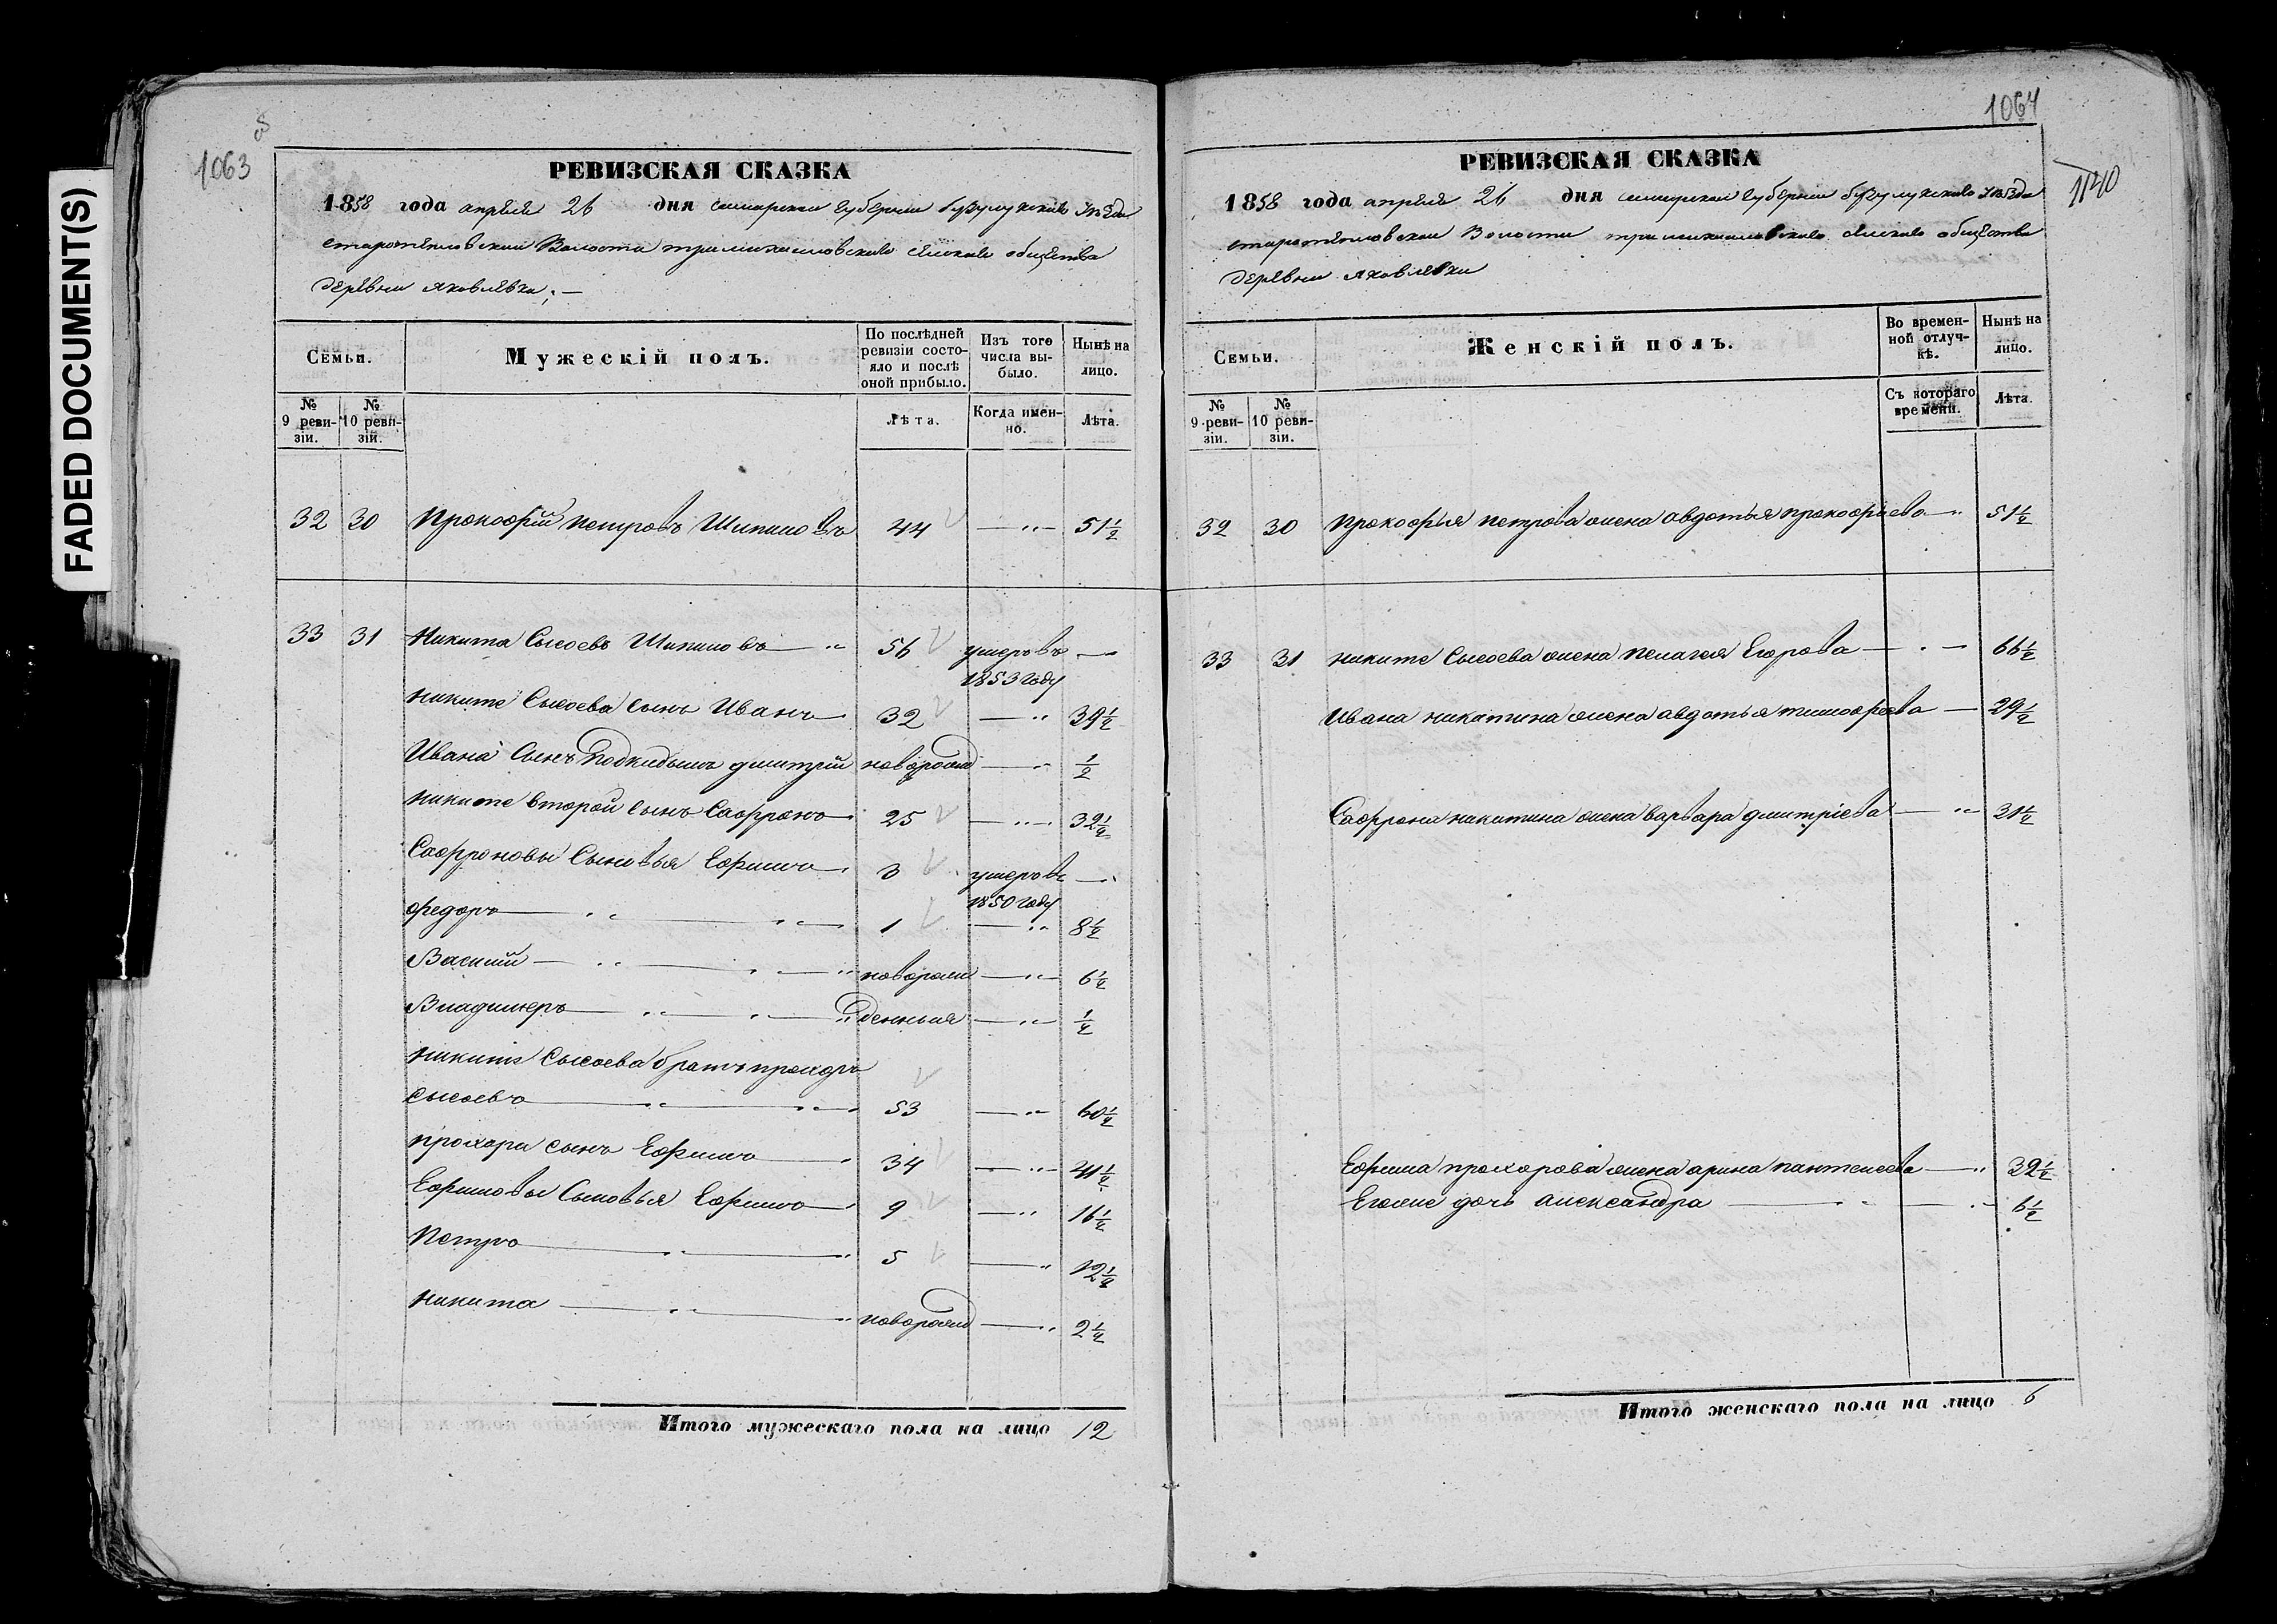 FADED DOCUMENT(S)
1063
РЕВИЗСКАЯ СКАЗКА
1858 года апреля 26 дня самарской губернии бузулукскаго уѣзда
старотепловской Волости тримихаиловскаго сельскаго общества
деревни яковлевки
Семьи.
Мужескій полъ.
По послѣдней ревизіи состояло и послѣ оной прибыло.
Изъ того числа выбыло.
Нынѣ на лицо.
№ 9 ревизіи.
№ 10 ревизіи.
Лѣта.
Когда именно.
Лѣта.
32 30 Прокофій петровъ Шипиловъ 44 — 51½
33 31 Никита Сысоевъ Шипиловъ 56 умеръ въ 1853 году —
никите Сысоева сынъ Иванъ 32 — 39½
Ивана Сынъ Подкидышъ дмитрій новорожд — ½
никите второй сынъ Сафронъ 25 — 32½
Сафроновы Сыновья Ефимъ 3 умеръ въ 1850 году —
федоръ 1 — 8½
Василій новорож — 6½
Владимеръ денныя — ½
никите Сысоева братъ прохоръ
сысоевъ 53 — 60½
прохора сынъ Ефимъ 34 — 41½
Ефимовы Сыновья Ефимъ 9 — 16½
Петръ 5 — 12½
никита новорожд — 2½
Итого мужескаго пола на лицо 12
1064
1140
РЕВИЗСКАЯ СКАЗКА
1858 года апреля 26 дня самарской губернии бузулукскаго уѣзда
старотепловской Волости тримихаиловскаго сельскаго общества
деревни яковлевки
Семьи.
Женскій полъ.
Во временной отлучкѣ.
Нынѣ на лицо.
№ 9 ревизіи.
№ 10 ревизіи.
Съ котораго времени.
Лѣта.
32 30 Прокофья петрова жена авдотья прокофьева — 51½
33 31 никите Сысоева жена пелагея Егорова — 66½
Ивана никитина жена авдотья тимофеева — 29½
Сафрона никитина жена варвара дмитріева — 31½
Ефима прохорова жена арина пантелеева — 32½
Егоже дочь александра — 6½
Итого женскаго пола на лицо 6